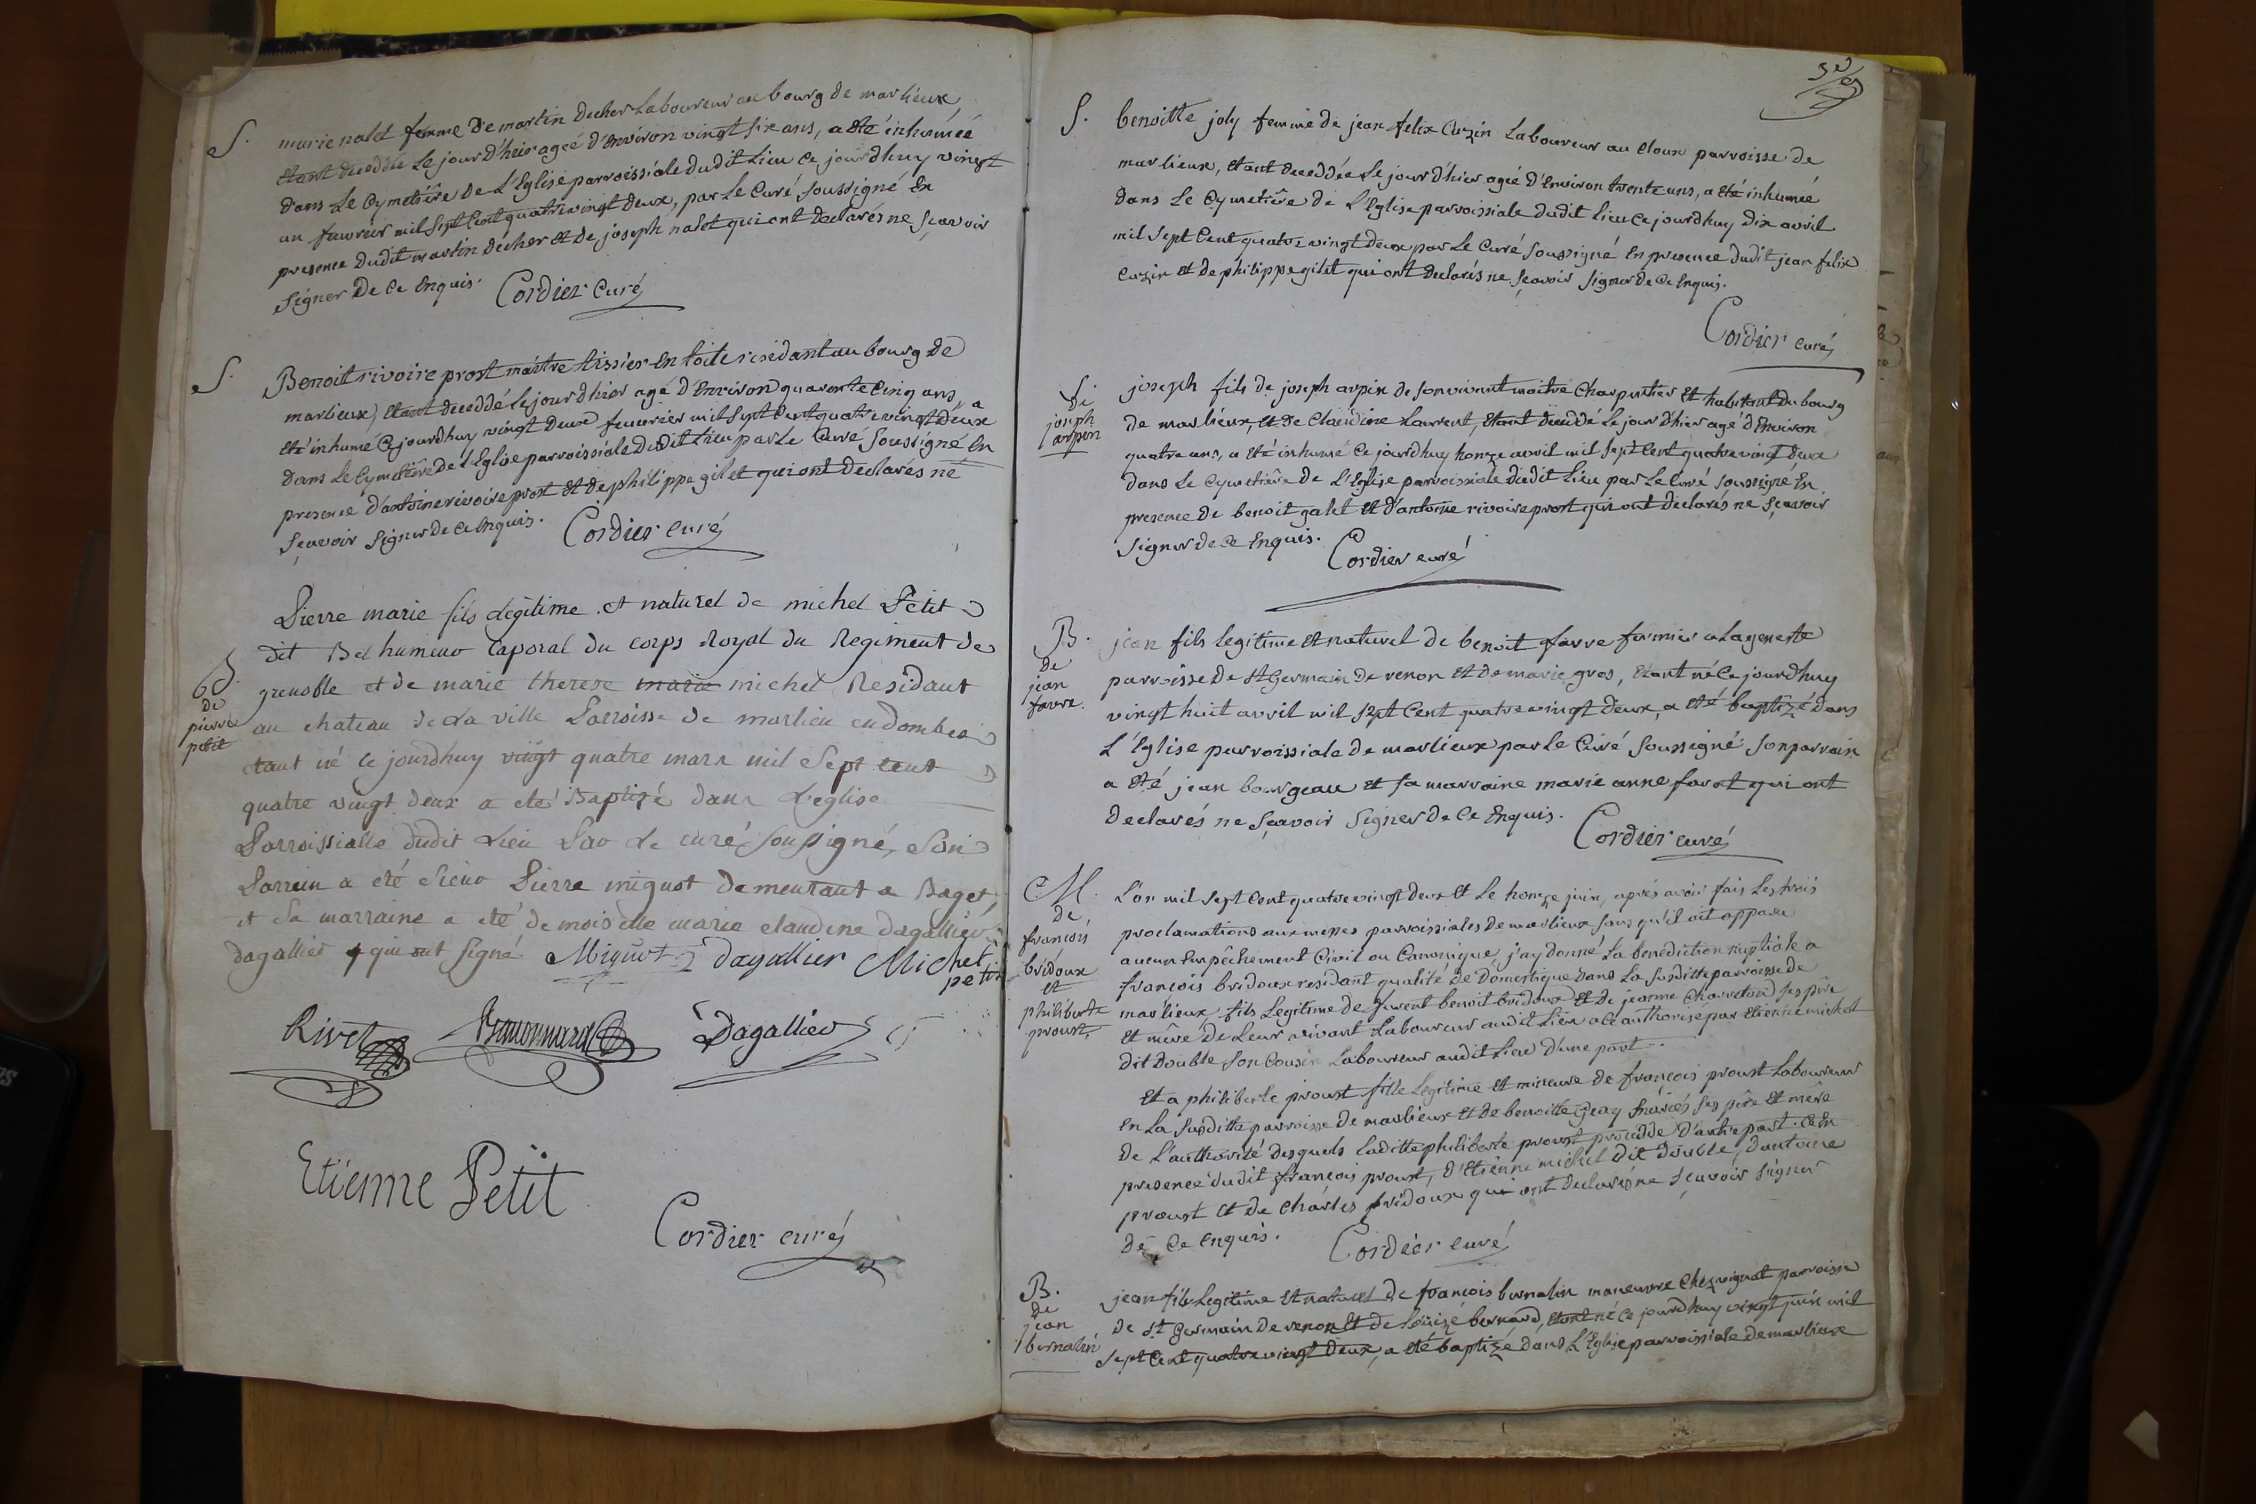 S. marie nalet femme de martin decher Laboureur au bourg de marlieux,
etant decedée Le jour d'heir ageé d'Environ vingt six ans, a eté inhumeé
dans Le Cymetiêre de L'Eglise parroissiale dudit Lieu Ce jourdhuy vingt
un fevvrier mil Sept Cent quatre vingt deux, par Le Curé Soussigné En
presence dudit martin decher et de joseph nalet qui ont declarés ne Sçavoir
Signer de Ce Enquis.
Cordier Curé
S. Benoit rivoire prost maitre tissier En toile residant au bourg de
marlieux, etant deceddé Le jour d'hier agé d'Environ quarente Cinq ans, a
eté inhumé Ce jourdhuy vingt deux fevvrier mil Sept Cent quatre vingt deux
dans Le Cymetiêre de L'Eglise parroissiale dudit Lieu par Le Curé Soussigné En
presence d'antoine rivoire prost et de philippe gilet qui ont declarés ne
Sçavoir Signer de Ce Enquis.
Cordier curé
B.
de
pierre
petit
Pierre marie fils Legitime et naturel de michel Petit
dit Bel humeur Caporal du corps Royal du Regiment de
grenoble et de marie therese marie michel Residant
au chateau de La ville Parroisse de marlieu en dombes
etant né ce jourdhuy vingt quatre mars mil Sept cent
quatre vingt deux a eté Baptizé dans L'eglise
Parroissialle dudit Lieu Par Le curé soussigné, Son
Parrein a eté Sieur Pierre miguot demeurant a Baget,
et Sa marraine a eté demoiselle marie claudine dagallier
dagallier qui ont Signé
Miguot
Dagallier
Michel
petit
Rivet
Dagallier
Etienne Petit
Cordier curé
S. benoitte joly femme de jean felix Cuzin Laboureur au Cloux parroisse de
marlieux, etant deceddée Le jour d'hier ageé d'Environ trente ans, a eté inhumeé
dans Le Cymetiêre de L'Eglise parroissiale dudit Lieu Ce jourdhuy dix avril
mil Sept Cent quatre vingt deux par Le Curé Soussigné En presence dudit jean felix
Cuzin et de philippe gilet qui ont declarés ne Sçavoir Signer de Ce Enquis.
Cordier curé
S.
de
joseph
arpin
joseph fils de joseph arpin de Son vivant maitre Charpentier et habitant du bourg
de marlieux, et de Claudine Laurent, etant deceddé Le jour d'hier agé d'Environ
quatre ans, a eté inhumé Ce jourdhuy honze avril mil Sept Cent quatre vingt deux
dans Le Cymetiêre de L'Eglise parroissiale dudit Lieu par Le Curé Soussigné En
presence de benoit galet et d'antoine rivoire prost qui ont declarés ne Sçavoir
Signer de Ce Enquis.
Cordier curé
B.
de
jean
favre.
jean fils Legitime et naturel de benoit favre fermier a Lageneste
parroisse de St Germain de renon et de marie gros, etant né Ce jourdhuy
vingt huit avril mil Sept Cent quatre vingt deux, a eté baptizé dans
L'Eglise parroissiale de marlieux par Le Curé Soussigné Son parrain
a eté jean bourgeau et Sa marraine marie anne farot qui ont
declarés ne Sçavoir Signer de Ce Enquis.
Cordier curé
M.
de
francois
bridoux
et
philiberte
proust.
L'an mil Sept Cent quatre vingt deux et Le honze juin, après avoir fais Les trois
proclamations aux messes parroissiales de marlieux Sans qu'il ait apparu
aucun Empêchement Civil ou Canonique, j'ay donné La benediction nuptiale a
francois bridoux residant qualité de domestique dans La Susditte parroisse de
marlieux, fils Legitime de furent benoit bridoux et de jeanne Charreton Ses père
et mêre de Leur vivant Laboureurs audit Lieu a Ce authorisé par Etienne michel
dit double Son Cousin Laboureur audit Lieu d'une part.
et a philiberte proust fille Legitime et mineure de françois proust Laboureur
En La Susditte parroisse de marlieux et de benoitte Geay mariés Ses père et mêre
de L'authorité desquels Laditte philiberte proust procedde d'autre part. Ce En
presence dudit françois proust, d'Etienne michel dit double, d'antoine
proust et de Charles bridoux qui ont declarés ne Sçavoir Signer
de Ce Enquis.
Cordier curé
B.
de
jean
bernalin
jean fils Legitime et naturel de francois bernalin maneuvre Chez vignat parroisse
de St Germain de renon et de Louize bernard, etant né Ce jourdhuy vingt juin mil
Sept Cent quatre vingt deux, a eté baptizé dans L'Eglise parroissiale de marlieux